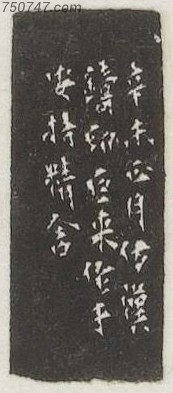 750747.com
辛未正月仿漢
鑄印 來作于
安持精舍